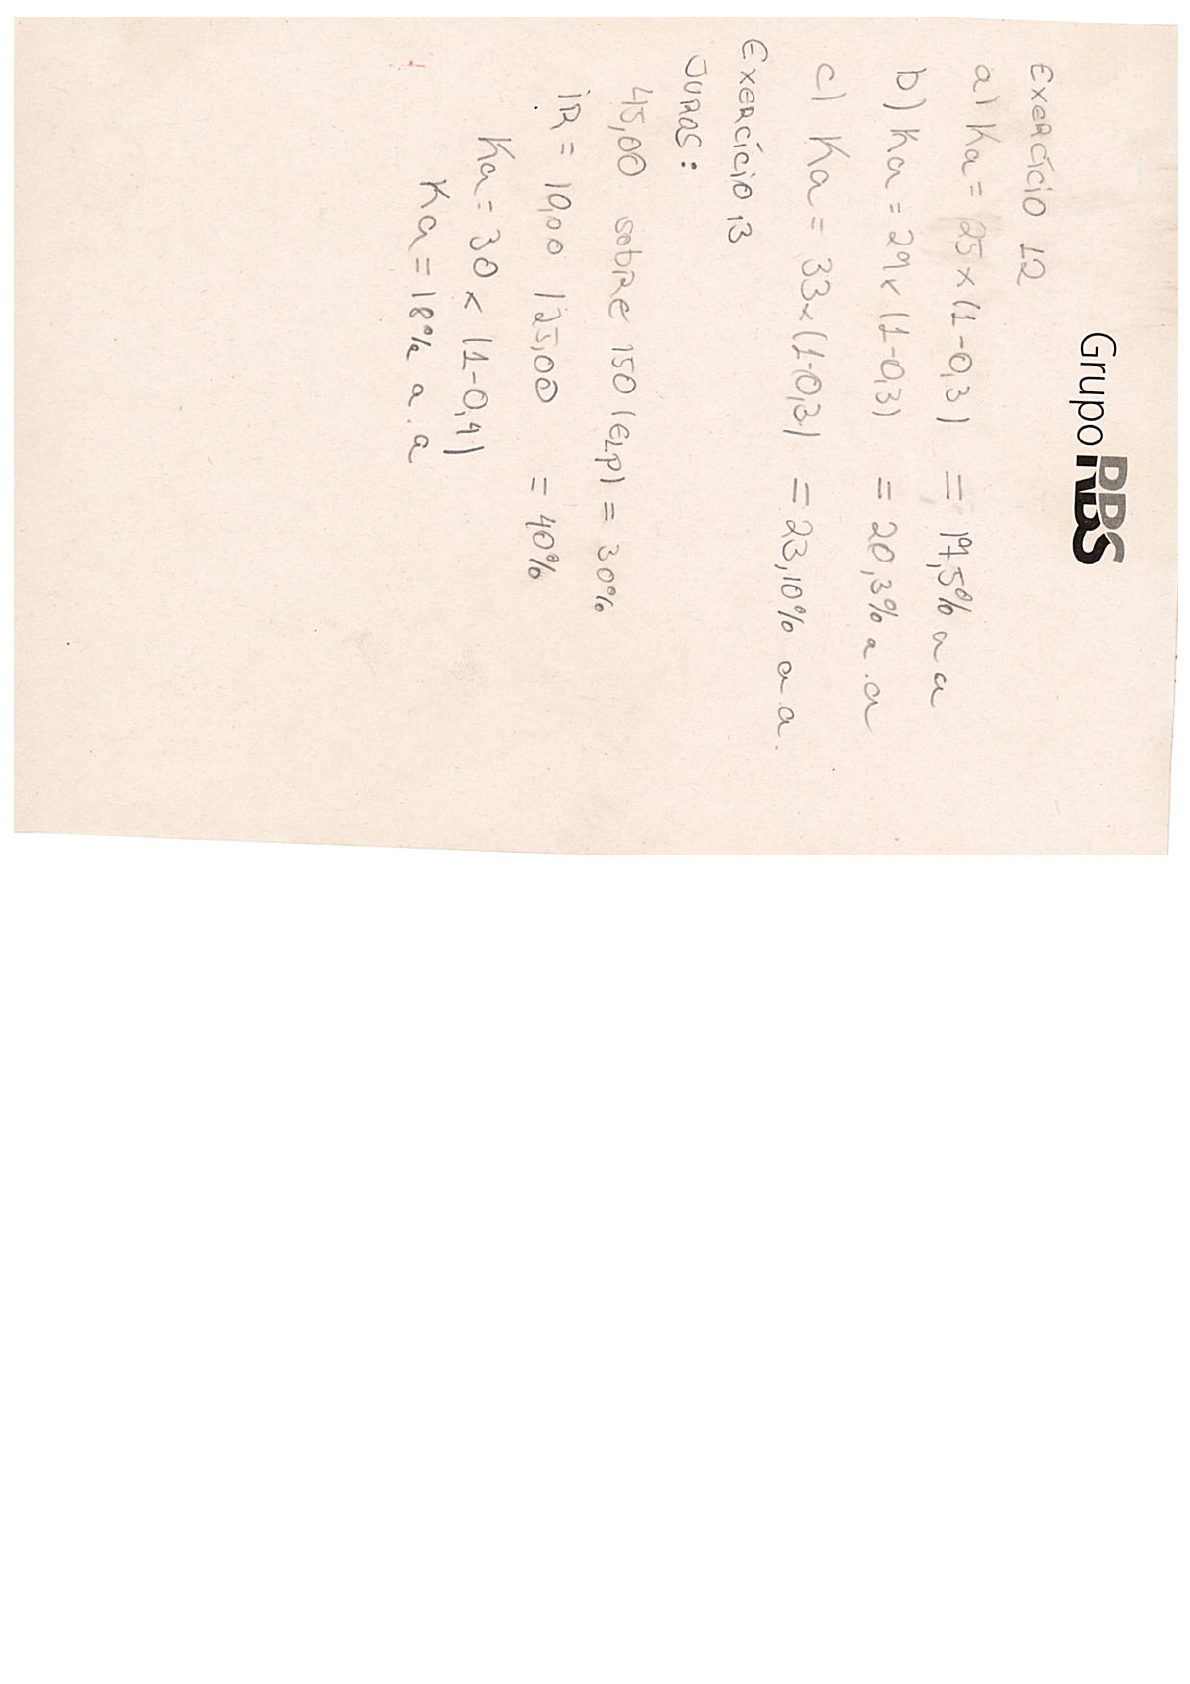 Grupo RBS
Exercício 12
a) Ka = 25 x (1-0,3) = 17,5% a a
b) Ka = 29 x (1-0,3) = 20,3% a.a
c) Ka = 33 x (1-0,3) = 23,10% a a.
Exercício 13
Juros:
45,00 sobre 150 (ELP) = 30%
iR = 10,00 / 25,00 = 40%
Ka = 30 x (1-0,4)
Ka = 18% a.a